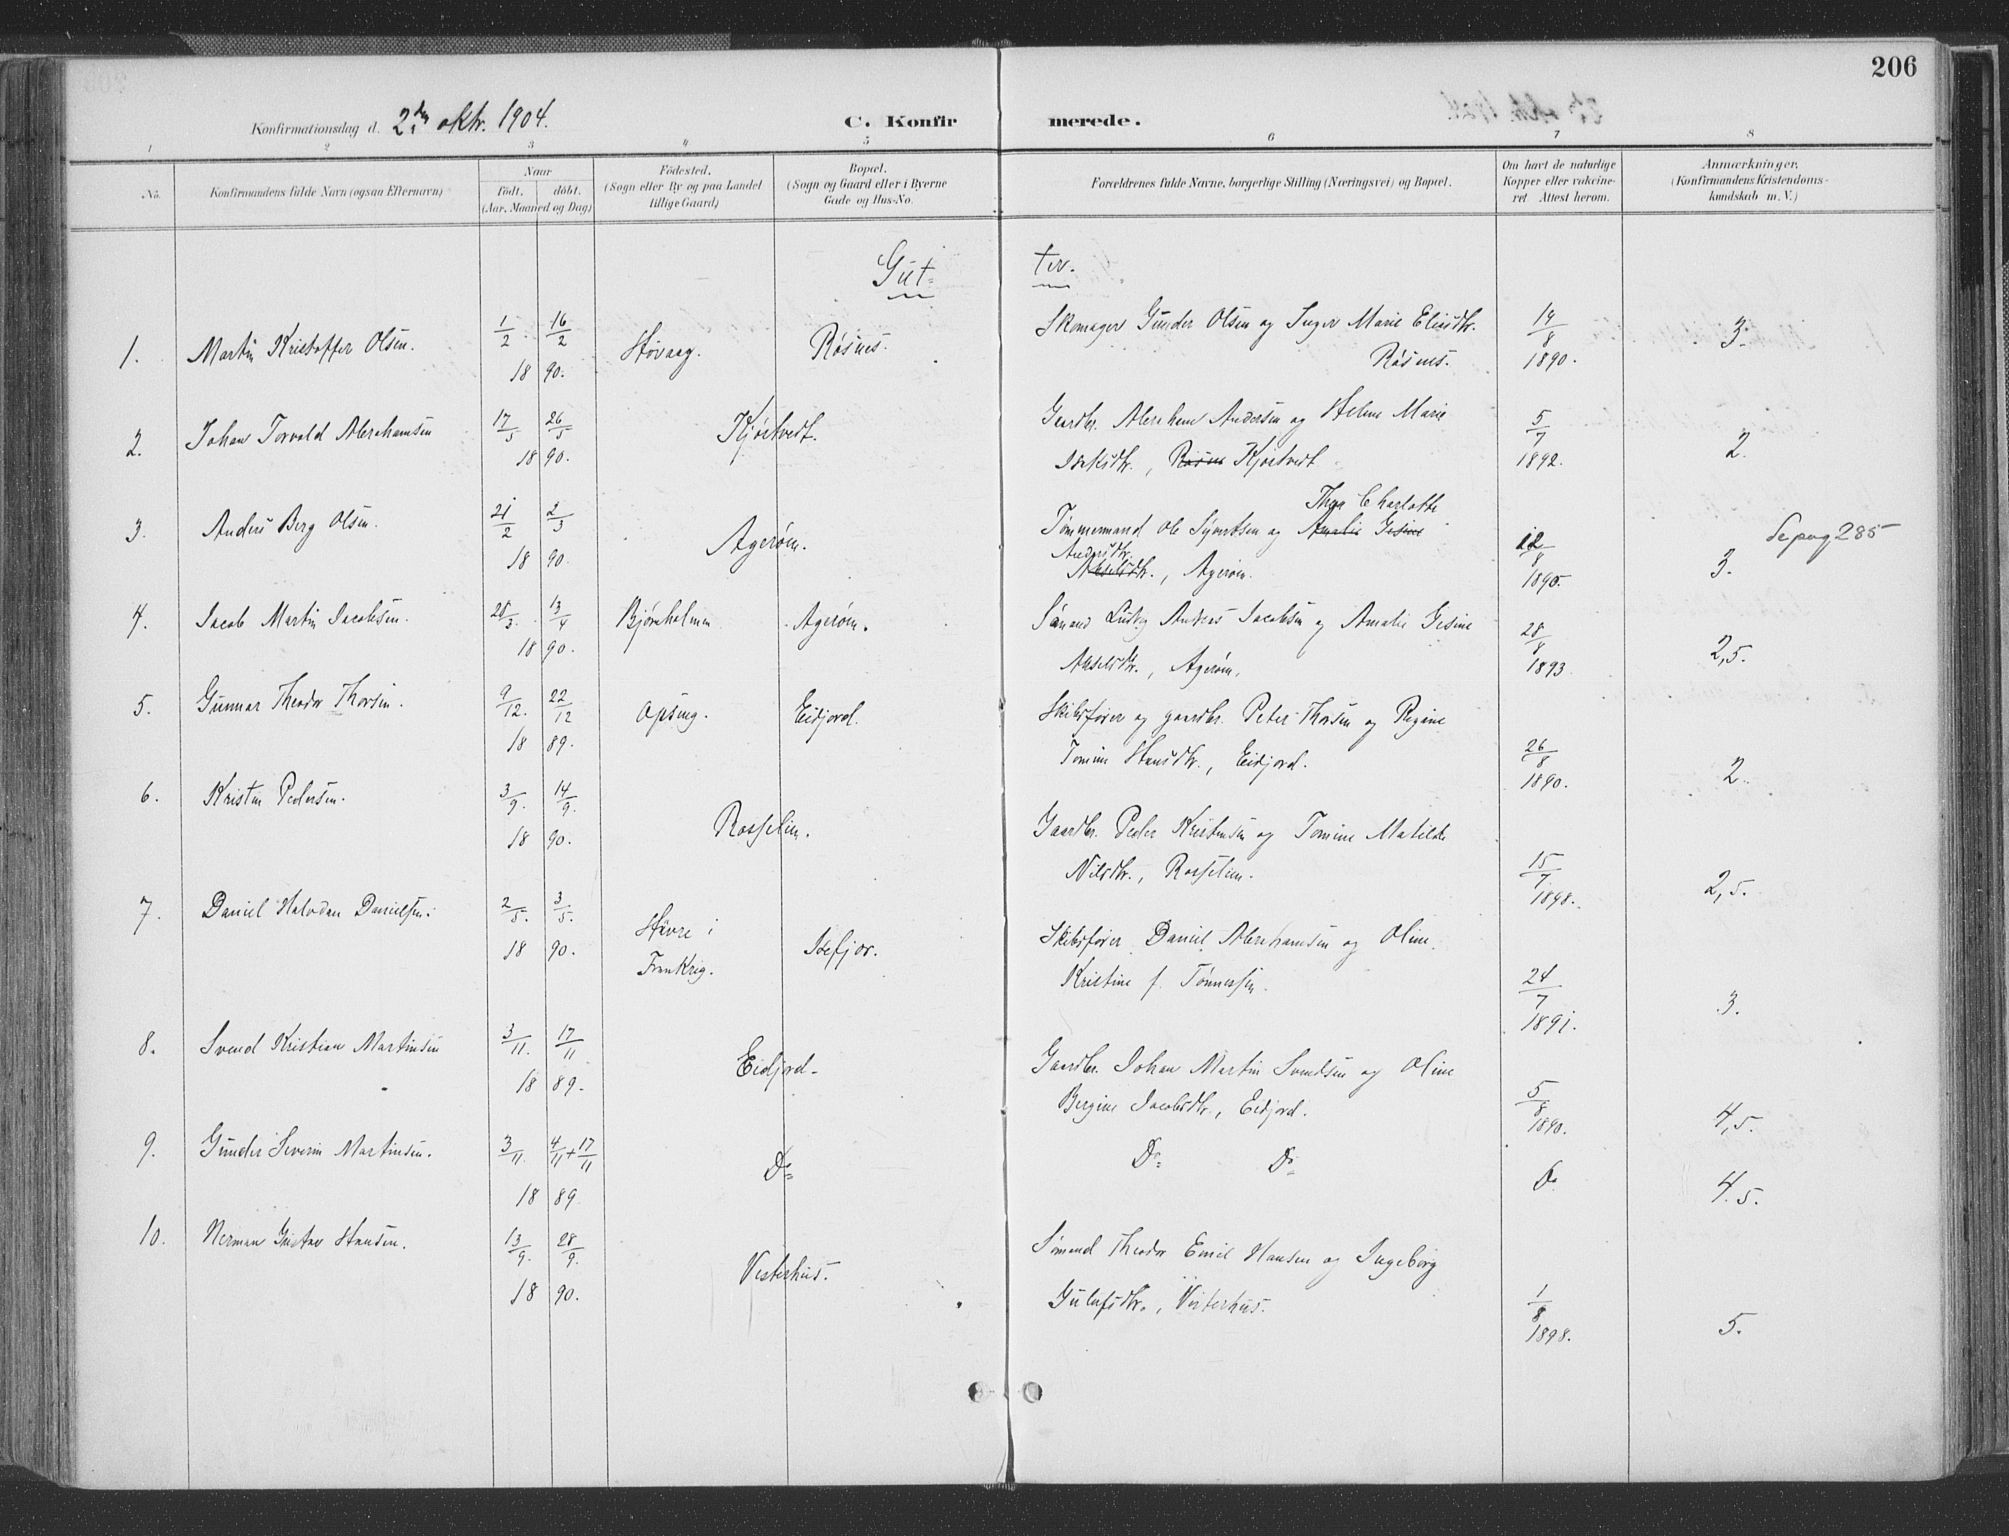 206
Konfirmationsdag d. 2den oktr. 1904.
C. Konfirmerede.
1 2 3 4 5 6 7 8
No.
Konfirmandens fulde Navn (ogsaa Efternavn)
Naar
födt. döbt.
(Aar, Maaned og Dag)
Födested.
(Sogn eller By og paa Landet
tillige Gaard)
Bopæl.
(Sogn og Gaard eller i Byerne
Gade og Hus-No.
Forældrenes fulde Navne, borgerlige Stilling (Næringsvei) og Bopæl.
Om havt de naturlige
Kopper eller vakcine-
ret Attest herom.
Anmærkninger,
(Konfirmandens Kristendoms-
kundskab m. V.)
Gut-
ter.
1. Martin Kristoffer Olsen. 1/2 16/2 Høvaag. Røsnes. Skomager Gunder Olsen og Inger Marie Eliasdtr. 14/8 3.
18 90. Røsnes. 1890.
2. Johan Torvald Abrahamsen 17/5 26/5 Kjøstvedt. Gaardbr. Abraham Andersen og Helene Marie 5/7 2.
18 90. Isaksdtr., Røsnes Kjøstvedt 1892.
Thea Charlotte
3. Anders Berg Olsen. 21/2 2/3 Agerøen. Tømmermand Ole Syvertsen og Amalie Gesine 12/8 Se pag 285
Andersdtr.
18 90. Akselsdtr., Agerøen. 1890. 3.
4. Jacob Martin Jacobsen. 28/3 13/4 Bjørnholmen Agerøen. Sømand Ludvig Andreas Jacobsen og Amalie Gesine 28/8 2,5.
18 90. Akselsdtr., Agerøen. 1893
5. Gunnar Theodor Thorsen. 9/12. 22/12 Opsung. Eidjord. Skibsfører og gaardbr. Peter Thorsen og Regine
18 89. Tomine Hansdtr., Eidjord. 26/8 1890. 2.
6. Kristen Pedersen. 3/9. 14/9. Rosselien. Gaardbr. Peder Kristensen og Tomine Matilde
18 90. Nilsdtr., Rosselien. 15/7 1898. 2,5.
7. Daniel Halvdan Danielsen. 2/5. 3/5. Havre i Frankrig. Isefjær. Skibsfører Daniel Abrahamsen og Oline
18 90. Kristine f. Tønnessen. 24/7 1891. 3.
8. Svend Kristian Martinsen 3/11. 17/11 Eidjord. Gaardbr. Johan Martin Svendsen og Oline
18 89. Bergine Jacobsdtr., Eidjord. 5/8 1890. 4,5.
9. Gunder Severin Martinsen. 3/11. 4/11+17/11 Do Do Do Do
18 89 4.5.
10. Herman Gustav Hansen. 13/9. 28/9. Vesterhus. Sømand Theodor Emil Hansen og Ingeborg
18 90. Gulufsdtr., Vesterhus. 1/8 1898. 5.